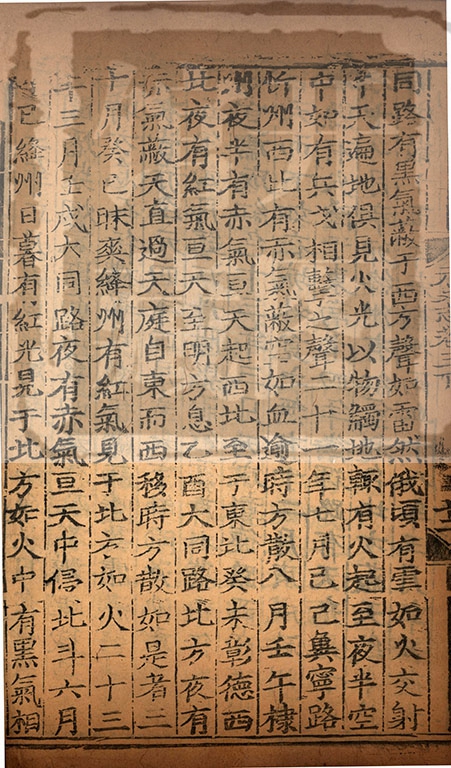 同路有黑氣蔽于西方聲如雷然俄頃有雲如火交射
中天遍地俱見火光以物觸地輒有火起至夜半空
中如有兵戈相擊之聲二十一年七月己巳冀寧路
忻州西北有赤氣蔽空如血逾時方散八月壬午棣
州夜半有赤氣亘天起西北至于東北癸未彰德西
北夜有紅氣亘天至明方息乙酉大同路北方夜有
赤氣蔽天直過天庭自東而西移時方散如是者二
十月癸巳昧爽絳州有紅氣見于北方如火二十三
年三月壬戌大同路夜有赤氣亘天中侵北斗六月
巳絳州日暮有紅光見于北方如火中有黑氣相